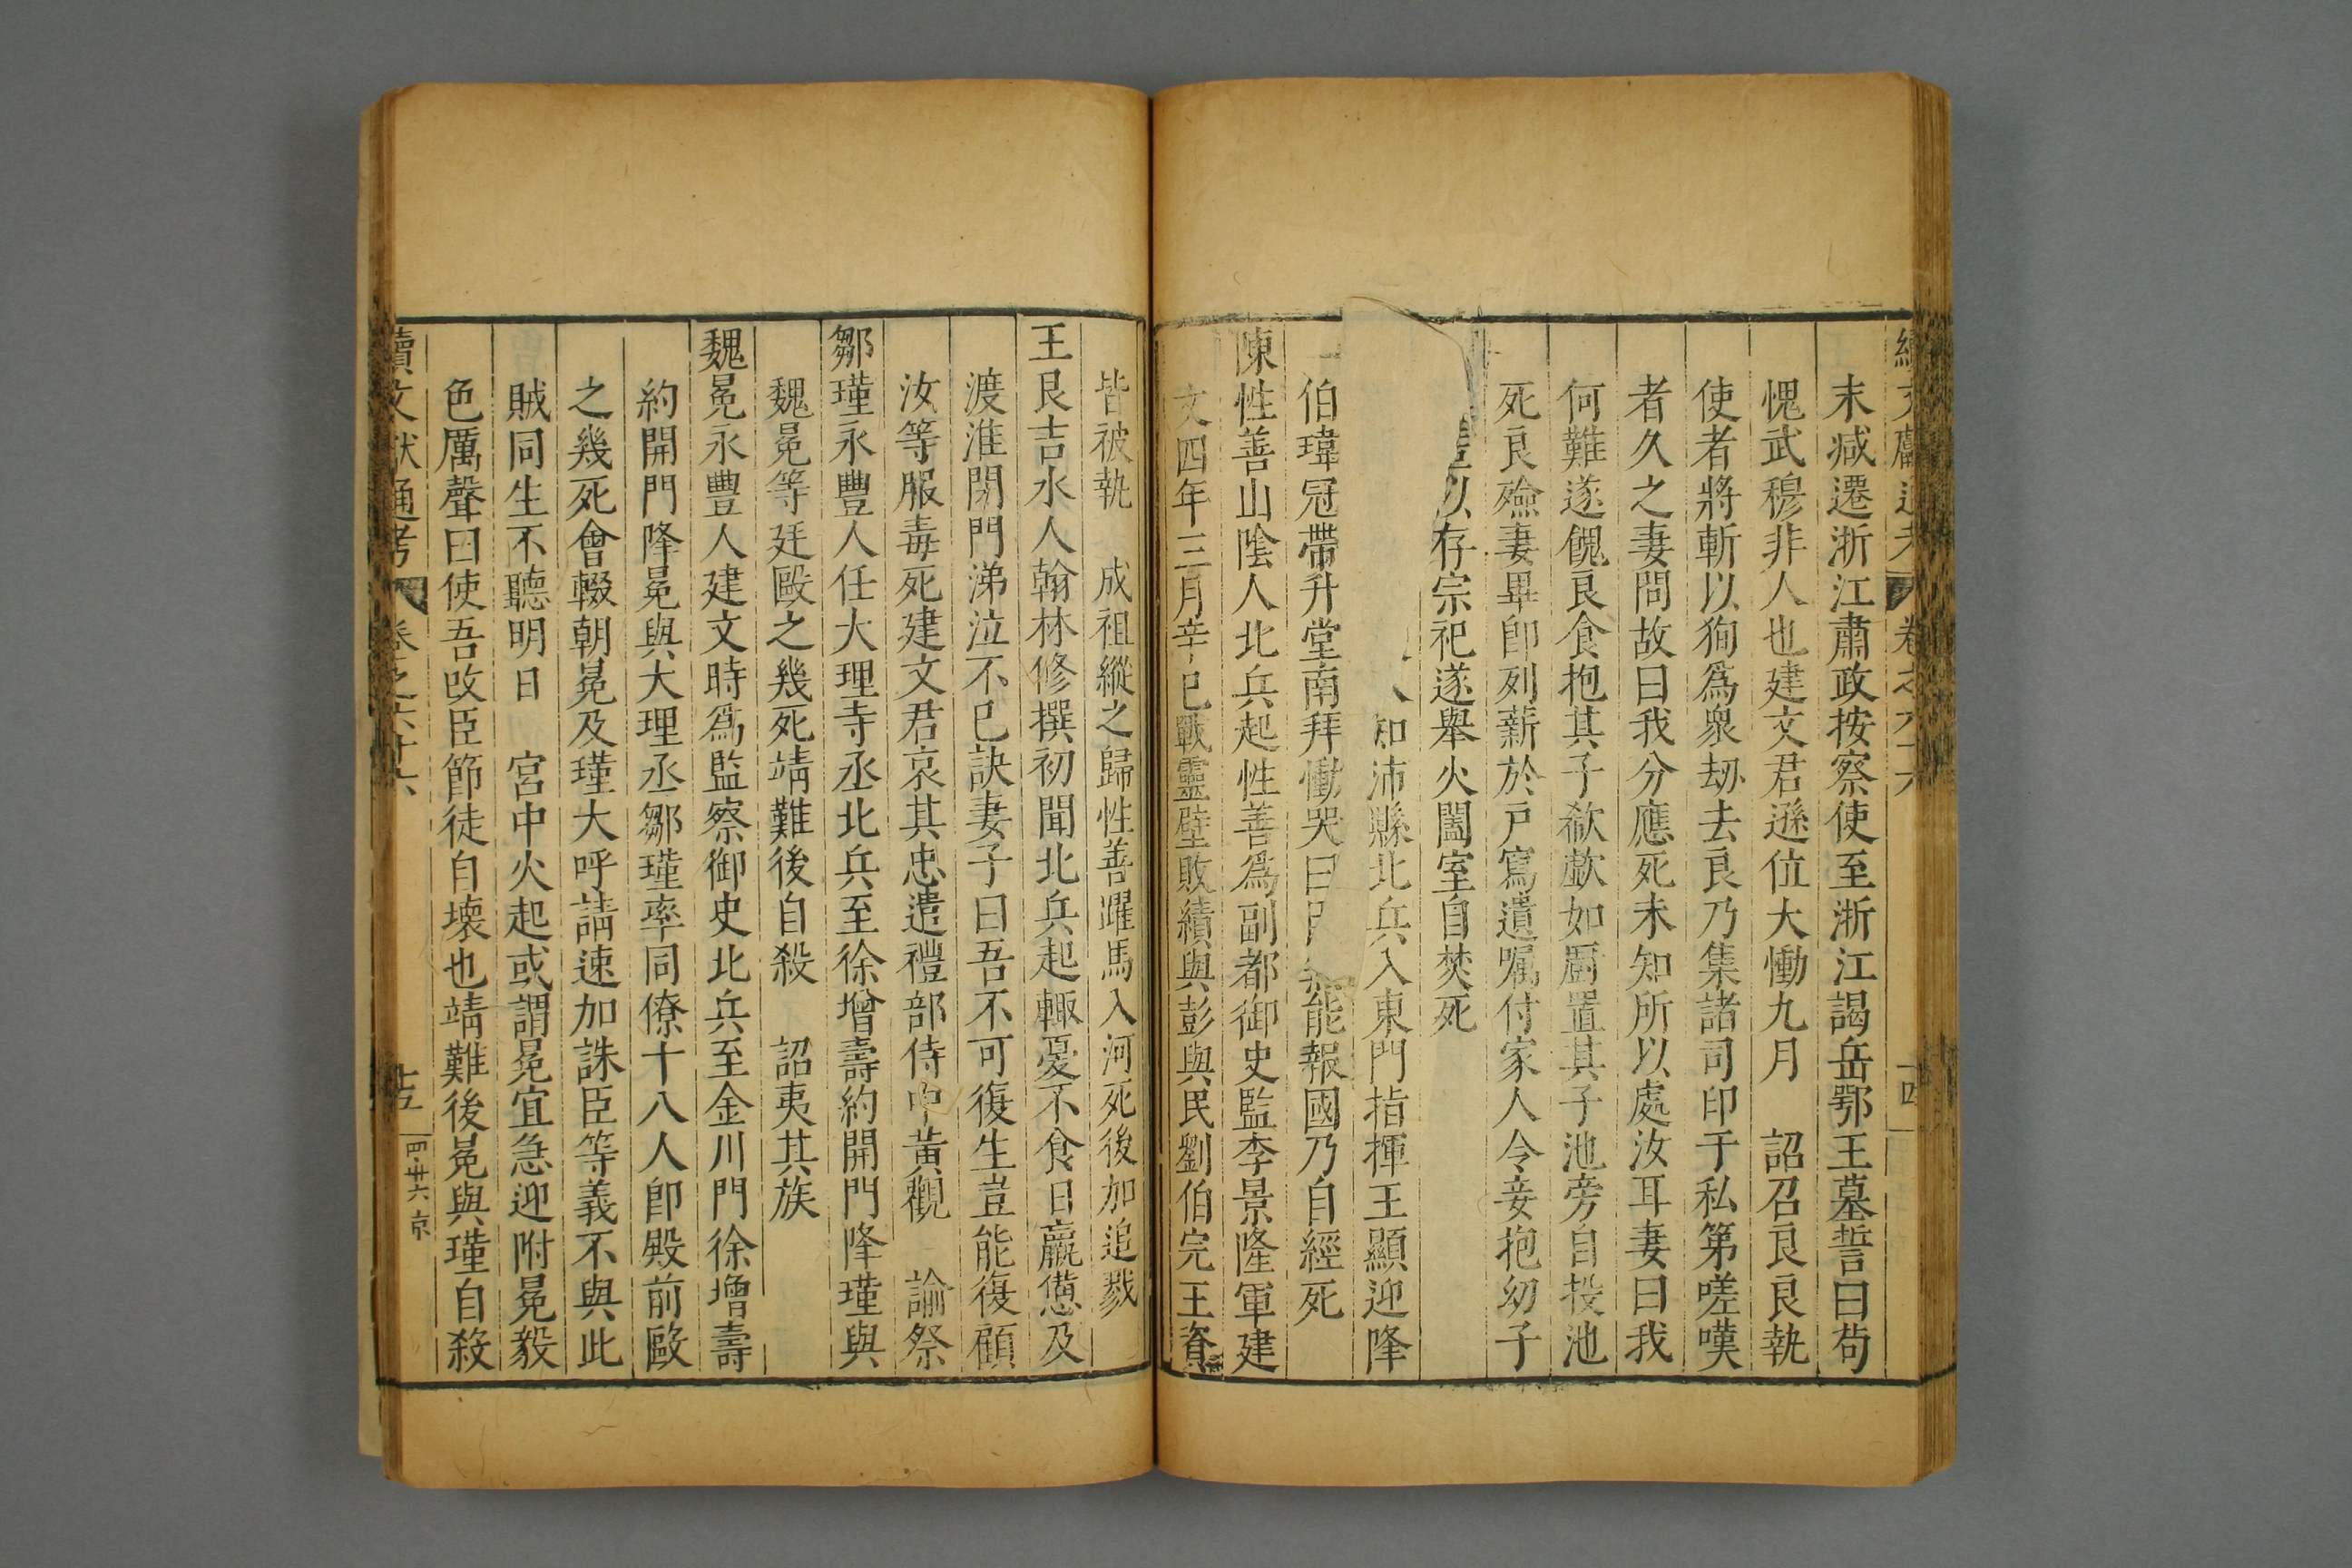 續文獻通考 卷之六十六 十四
末咸遷浙江肅政按察使至浙江謁岳鄂王墓誓曰苟
愧武穆非人也建文君遜位大慟九月 詔召良良執
使者將斬以狥爲衆刼去良乃集諸司印于私第嗟嘆
者久之妻問故曰我分應死未知所以處汝耳妻曰我
何難遂餽良食抱其子欷歔如厠置其子池旁自投池
死良殮妻畢卽列薪於戸寫遺嘱付家人令妾抱幼子
以存宗祀遂舉火闔室自焚死
知沛縣北兵入東門指揮王顯迎降
伯瑋冠帶升堂南拜慟哭曰 能報國乃自經死
陳性善山陰人北兵起性善爲副都御史監李景隆軍建
文四年三月辛巳戰靈壁敗績與彭與民劉伯完王資
皆被執 成祖縱之歸性善躍馬入河死後加追戮
王艮吉水人翰林修撰初聞北兵起輙憂不食日羸憊及
渡淮閉門涕泣不已訣妻子曰吾不可復生豈能復顧
汝等服毒死建文君哀其忠遣禮部侍中黃觀 諭祭
鄒瑾永豐人任大理寺丞北兵至徐增壽約開門降瑾與
魏冕等廷毆之幾死靖難後自殺 詔夷其族
魏冕永豐人建文時爲監察御史北兵至金川門徐增壽
約開門降冕與大理丞鄒瑾率同僚十八人卽殿前毆
之幾死會輟朝冕及瑾大呼請速加誅臣等義不與此
賊同生不聽明日 宮中火起或謂冕宜急迎附冕毅
色厲聲曰使吾改臣節徒自壞也靖難後冕與瑾自殺
續文獻通考 卷之六十六 十五 四·廿六 京